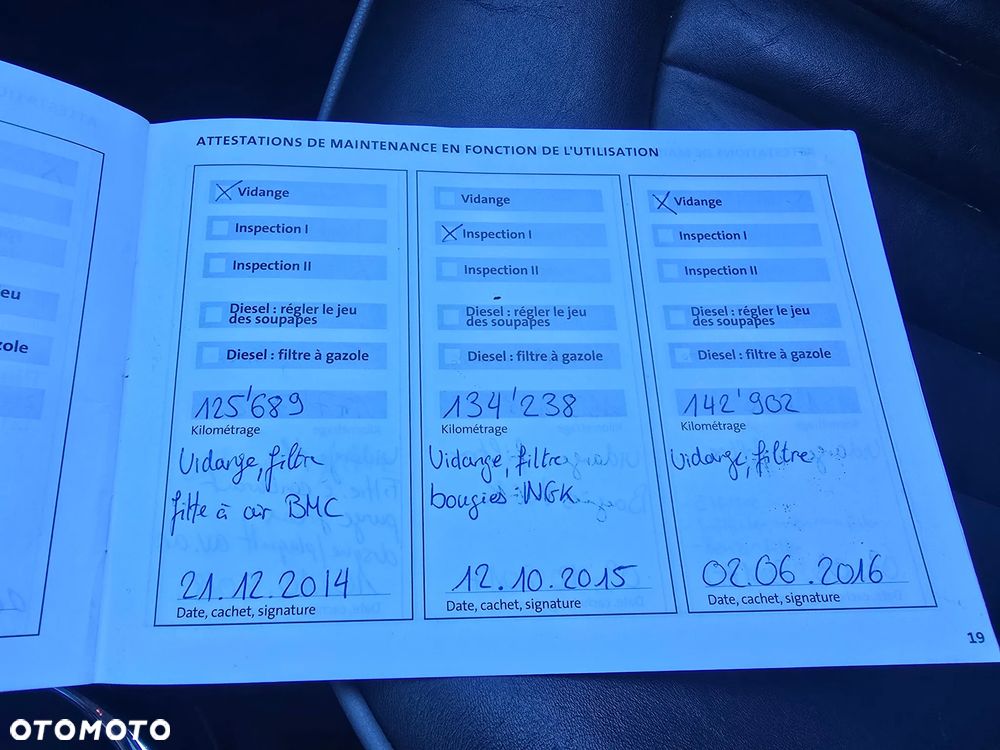 ATTESTATIONS DE MAINTENANCE EN FONCTION DE L'UTILISATION
Vidange
Inspection I
Inspection II
Diesel : régler le jeu
des soupapes
Diesel : filtre à gazole
125'689
Kilométrage
Vidange, filtre
filte à air BMC
21.12.2014
Date, cachet, signature
Vidange
Inspection I
Inspection II
Diesel : régler le jeu
des soupapes
Diesel : filtre à gazole
134'238
Kilométrage
Vidange, filtre
bougies NGK
12.10.2015
Date, cachet, signature
Vidange
Inspection I
Inspection II
Diesel : régler le jeu
des soupapes
Diesel : filtre à gazole
142'902
Kilométrage
Vidange, filtre
02.06.2016
Date, cachet, signature
19
eu
zole
OTOMOTO